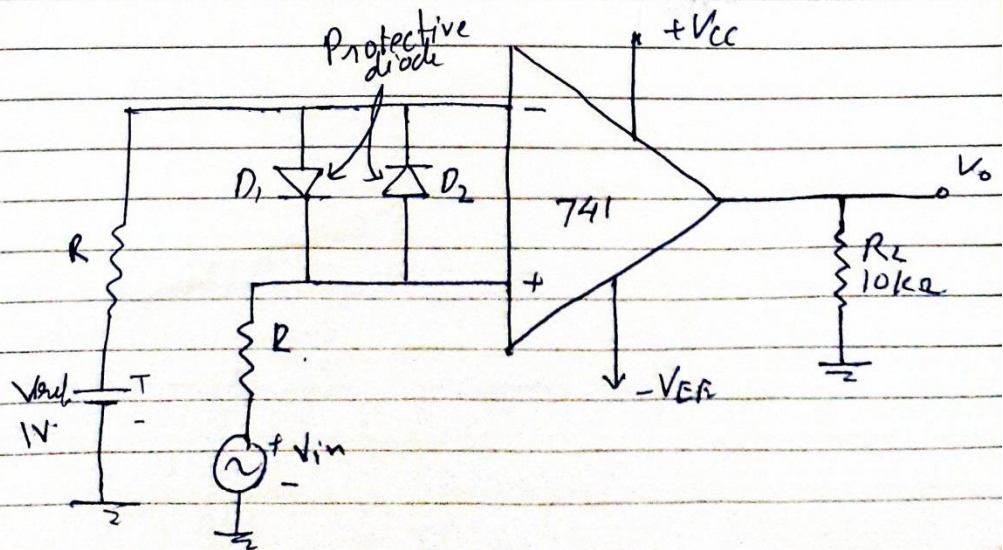 Protective
diode
+Vcc
-
D1
D2
741
Vo
R
RL
10kΩ
+
R
Vref
+
1V
-
+ Vin
-
-VEE